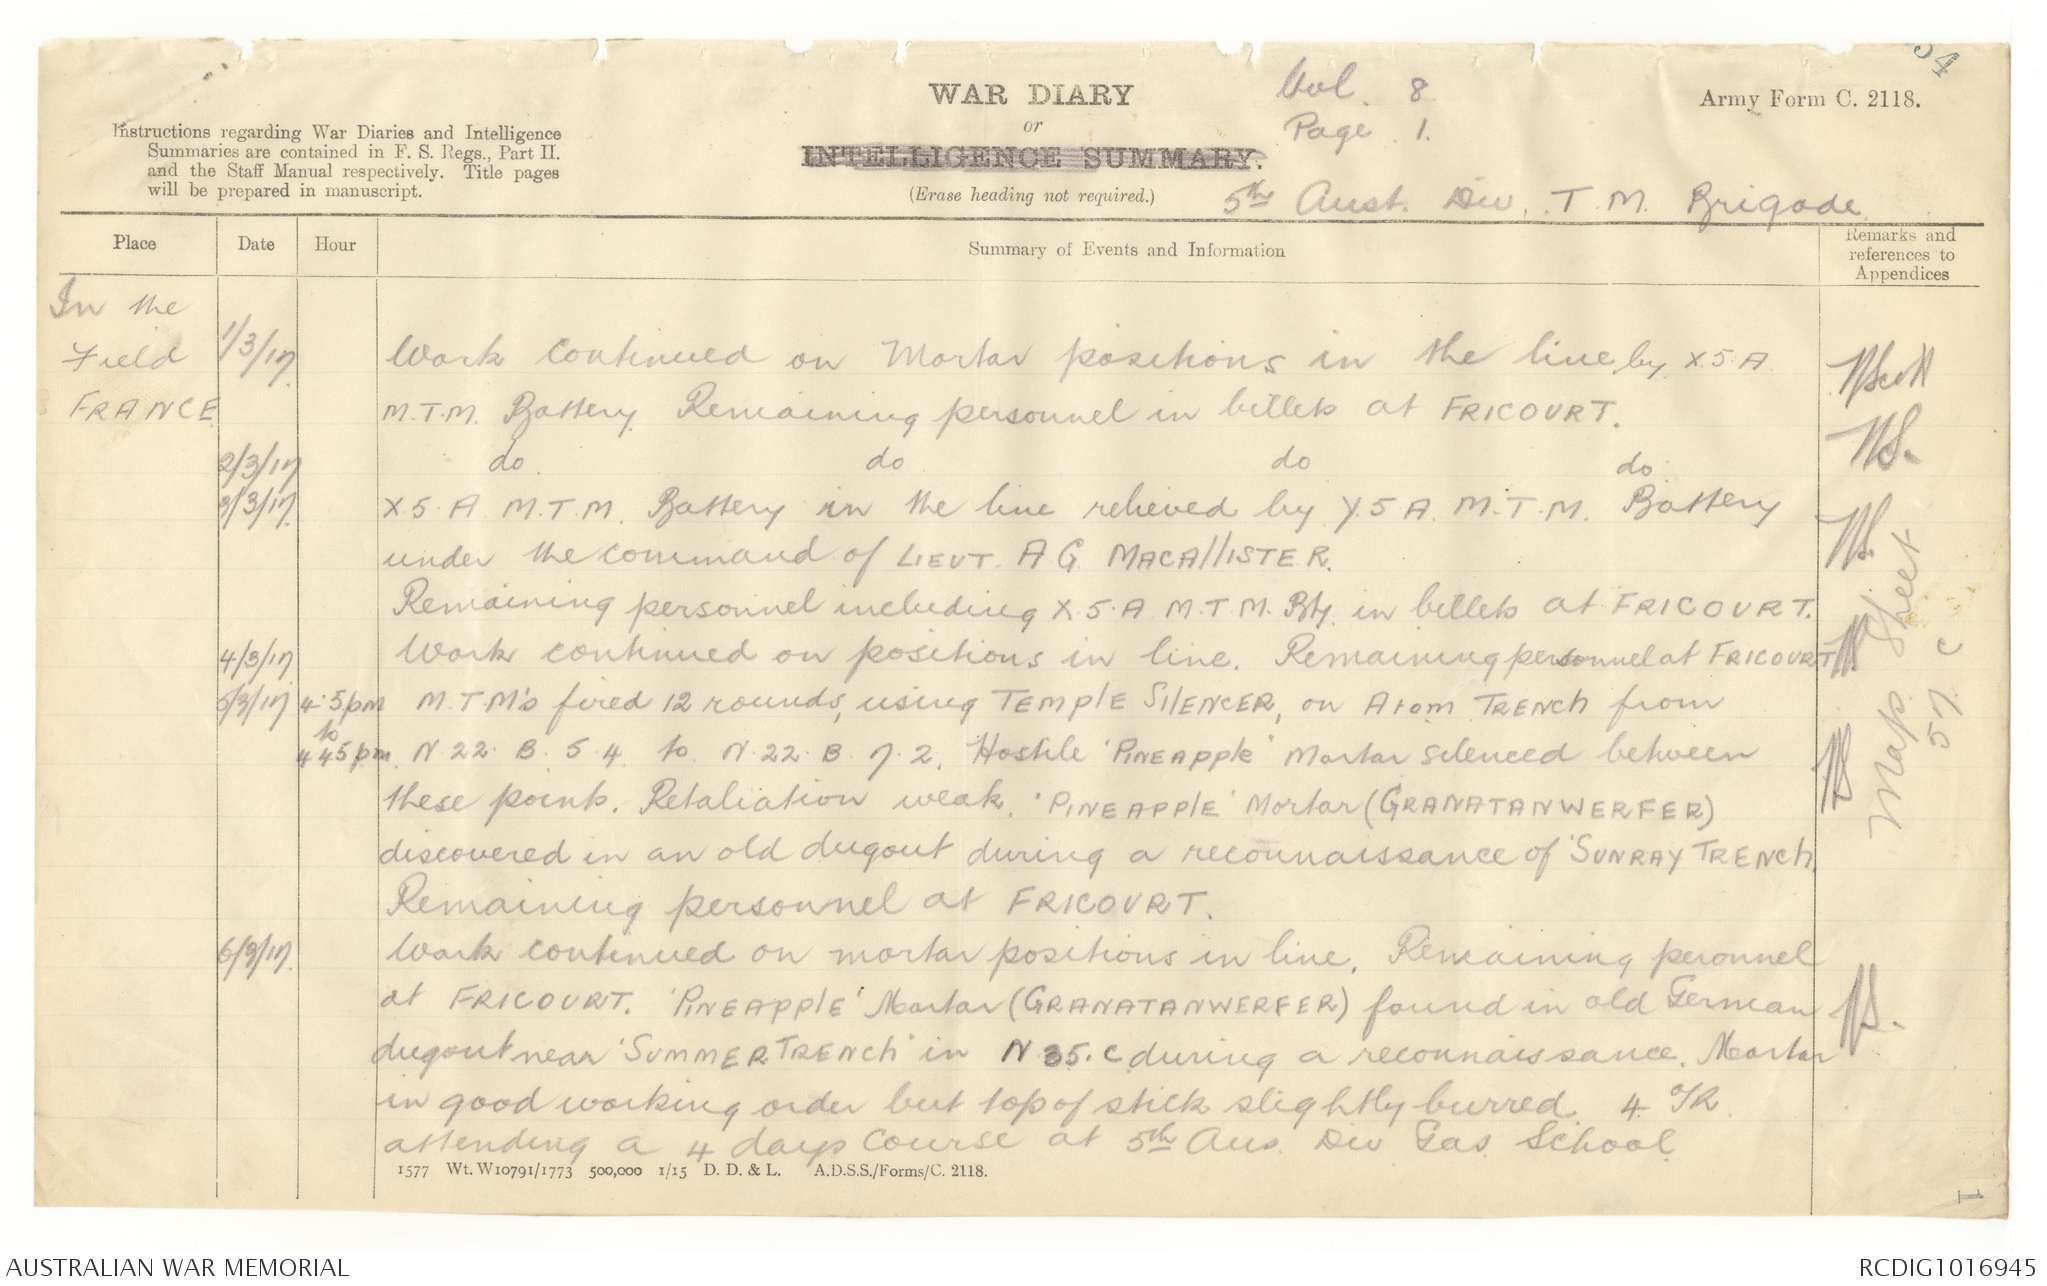 54
WAR DIARY
or
INTELLIGENCE SUMMARY.
(Erase heading not required.)
Vol. 8
Page 1.
5th Aust. Div. T. M. Brigade
Army Form C. 2118.
Instructions regarding War Diaries and Intelligence
Summaries are contained in F. S. Regs., Part II.
and the Staff Manual respectively. Title pages
will be prepared in manuscript.
Place Date Hour Summary of Events and Information Remarks and
references to
Appendices
In the
Field
FRANCE
1/3/17 Work continued on Mortar positions in the line by X.5.A
M.T.M. Battery. Remaining personnel in billets at FRICOURT.
2/3/17 do do do do WS.
3/3/17 X 5.A M.T.M. Battery in the line relieved by Y.5 A. M.T.M. Battery WS.
under the command of LIEUT. A G MACALLISTER.
Remaining personnel including X.5.A M.T.M. Bty. in billets at FRICOURT.
4/3/17 Work continued on positions in line. Remaining personnel at FRICOURT
5/3/17 4.5pm M.T.M's fired 12 rounds, using TEMPLE SILENCER, on ATOM TRENCH from
to
4.45pm. N.22. B. 5.4. to N.22. B. 7.2. Hostile 'PINEAPPLE' Mortar silenced between WS
these points. Retaliation weak. 'PINEAPPLE' Mortar (GRANATANWERFER)
discovered in an old dugout during a reconnaissance of 'SUNRAY TRENCH.
Remaining personnel at FRICOURT.
6/3/17 Work continued on mortar positions in line. Remaining peronnel
at FRICOURT. 'PINEAPPLE' Mortar (GRANATANWERFER) found in old German WS.
dugout near 'SUMMER TRENCH' in N 35.C during a reconnaissance. Mortar
in good working order but top of stick slightly burred. 4 O/R
attending a 4 days course at 5th Aus. Div Gas School
Map Sheet
57 c
1577 Wt. W10791/1773 500,000 1/15 D. D. & L. A.D.S.S./Forms/C. 2118.
1
AUSTRALIAN WAR MEMORIAL
RCDIG1016945